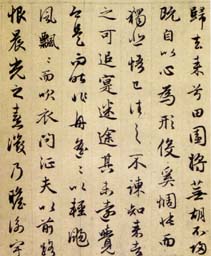 歸去來兮田園將蕪胡不歸
既自以心為形役奚惆悵而
獨悲悟已往之不諫知來者
之可追寔迷途其未遠覺
今是而昨非舟遙〻以輕颺
風飄〻而吹衣問征夫以前路
恨晨光之熹微乃瞻衡宇